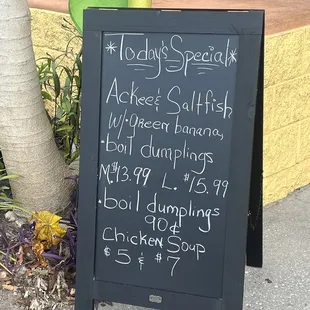 *Today's Special*
Ackee & Saltfish
W/ Green banana,
·boil dumplings
M.$13.99 L.$15.99
·boil dumplings
90¢
Chicken Soup
$5 & $7